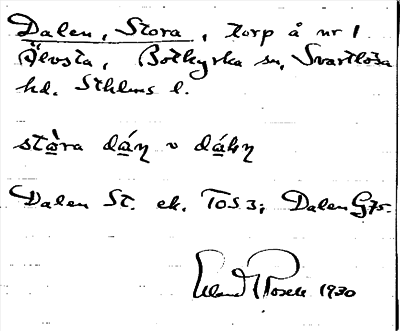 Dalen, Stora, torp å nr 1
Älvsta, Botkyrka sn, Svartlösa
hd. Sthlms l.
stòra dáṇ v dálṇ
Dalen St. ek. TOS 3; Dalen G75.
Erland Rosell 1930